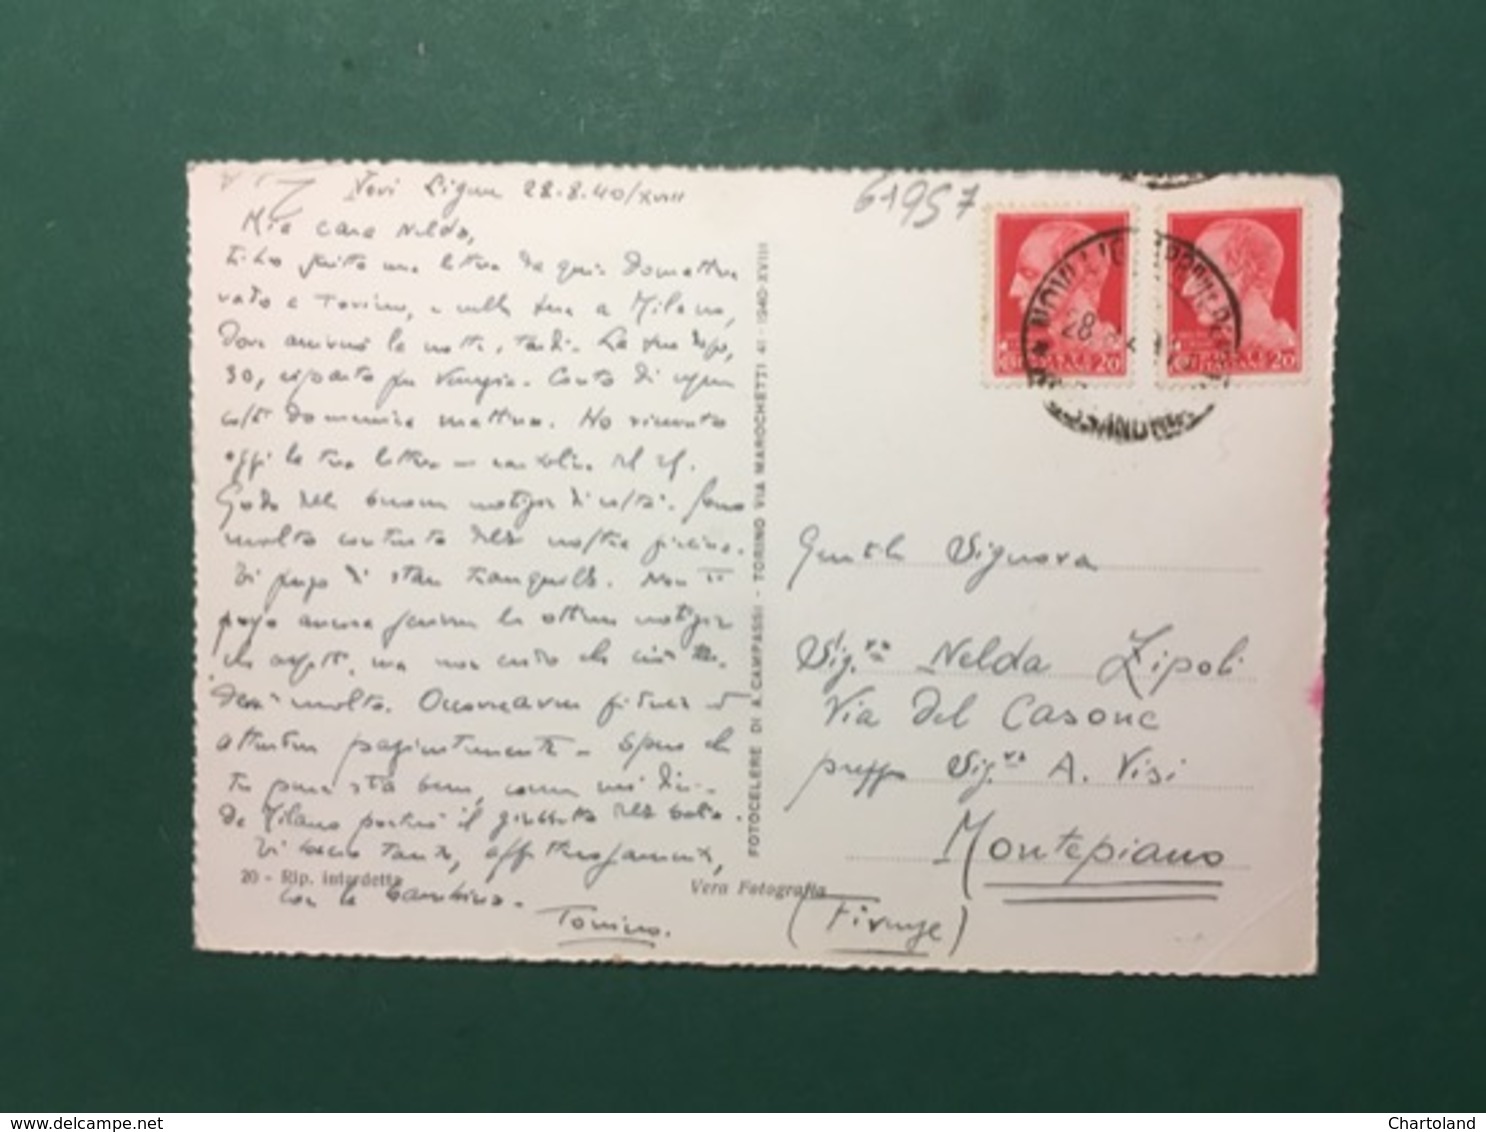 Novi Ligure 28.8.40/XVIII
61957
Mia cara Nelda,
ti ho scritto una lettera da qui. Domattina
vado a Torino, e nella sera a Milano,
dove arriverò la notte, tardi. La sera dopo,
30, riparto per Venezia. Conto di essere
costì domenica mattina. Ho ricevuto
oggi la tua lettera e cartolina del 25.
Godo delle buone notizie di costà. Sono
molto contento della nostra piccina.
Ti prego di stare tranquilla. Non ti
posso ancora scrivere le ottime notizie
che aspetti, ma non credo che
molto. Occorre aver fiducia ed
attendere pazientemente. Spero che
tu pure stia bene, come mi dici.
Da Milano porterò il
Vi bacio tanto, affettuosamente,
con la bambina.
Tonino.
20 - Rip. interdetta
Vera Fotografia
FOTOCELERE DI A. CAMPASSI - TORINO VIA MAROCHETTI 41 - 1940-XVIII
NOVI LIGURE
28
ALESSANDRIA
20
20
Gentile Signora
Sig.ra Nelda Zipoli
Via del Casone
presso Sig.ra A. Visi
Montepiano
(Firenze)
delcampe.net
Chartoland